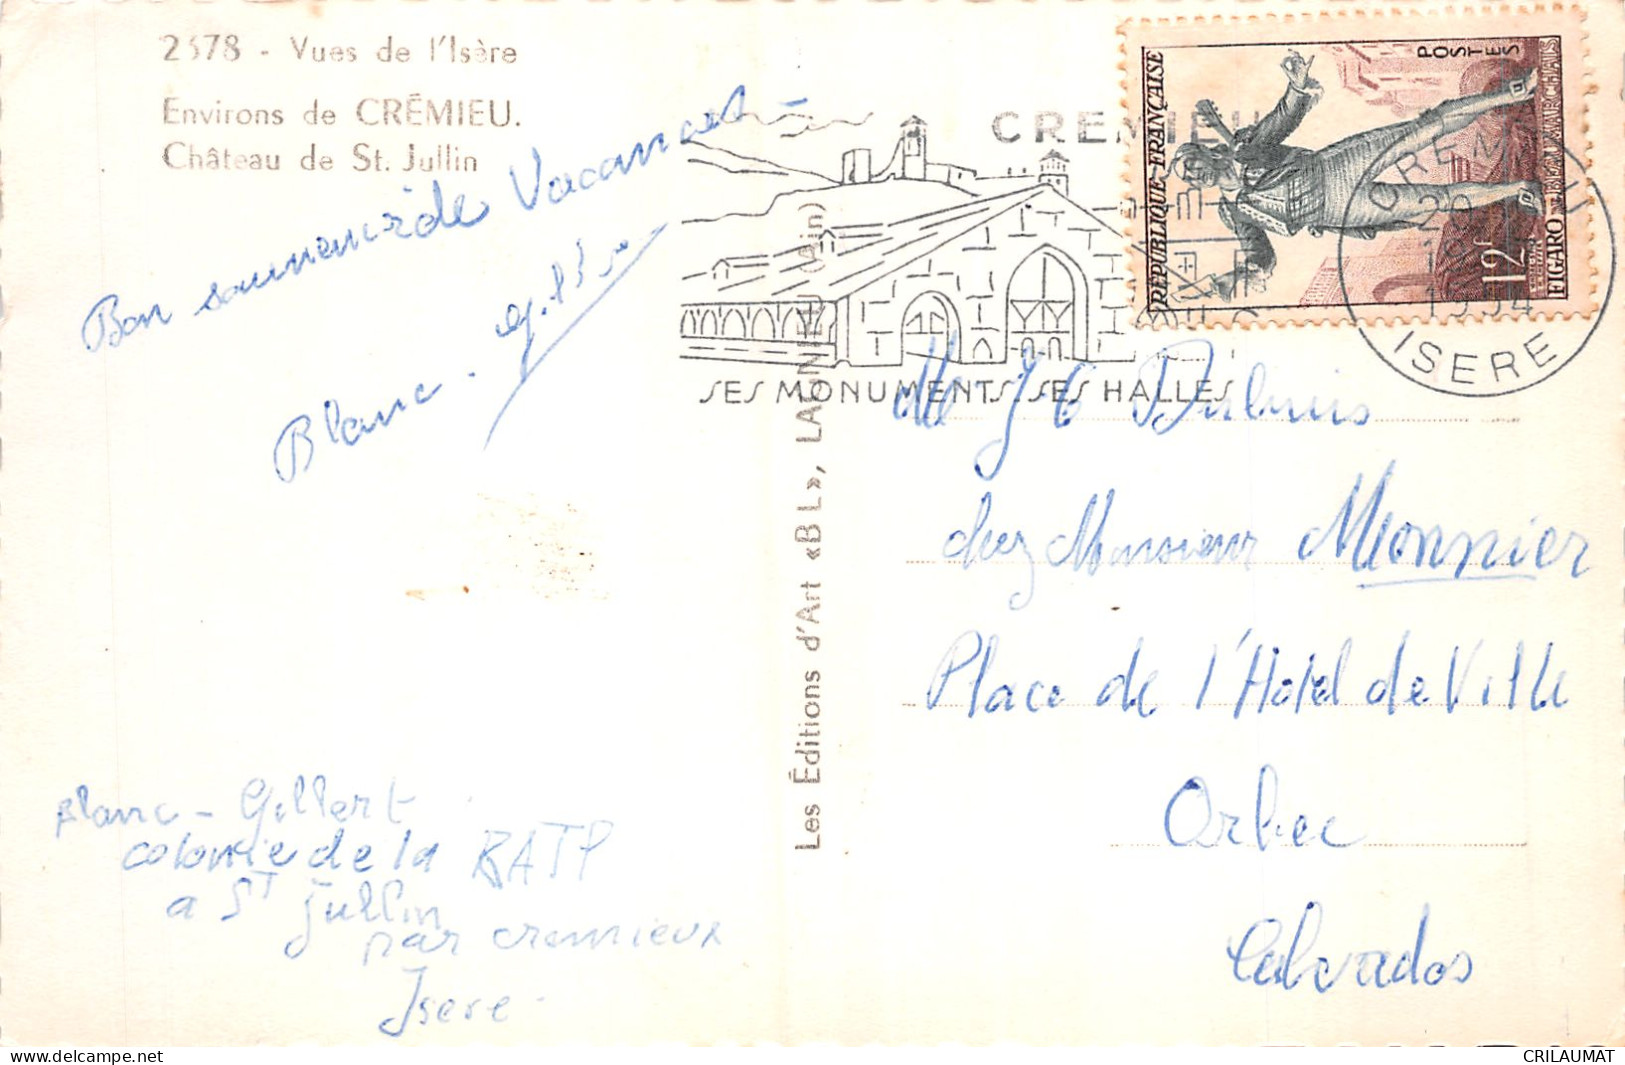 2378 - Vues de l'Isère
Environs de CRÉMIEU.
Château de St. Jullin
Bon souvenir de Vacances
Blanc.
Blanc - Gilbert
colonie de la RATP
a ST Jullin
par cremieux
Isere
Les Éditions d'Art «BL», LAGNIEU (Ain)
CREMIEU
SES MONUMENTS. SES HALLES
POSTES
RÉPUBLIQUE FRANÇAISE
12F
FIGARO DE BEAUMARCHAIS
CREMIEU
1954
ISERE
chez Monsieur Monnier
Place de l'Hotel de Ville
Orbec
Calvados
CRILAUMAT